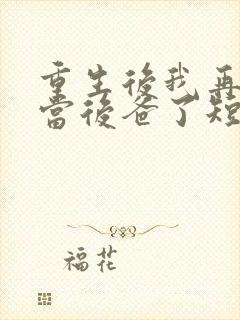 重生後我再
當後爸了短
福花